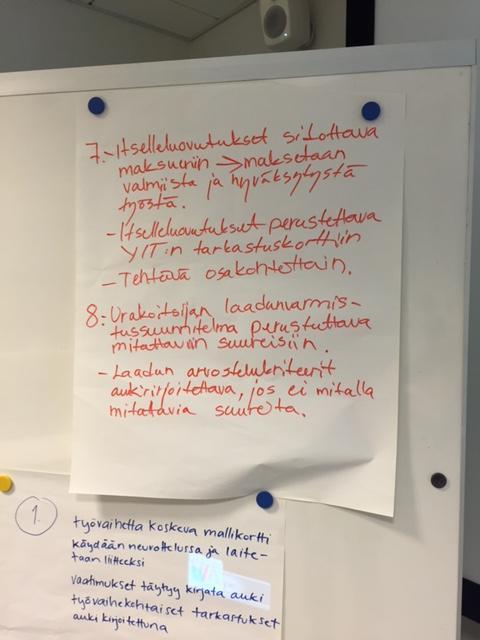 7. - Itselleluovutukset sidottava
maksueriin → maksetaan
valmiista ja hyväksytystä
työstä.
- Itselleluovutukset perustettava
YIT:n tarkastuskorttiin
- Tehtävä osakohteittain.
8: Urakoitsijan laadunvarmis-
tussuunnitelma perustuttava
mitattaviin suureisiin.
- Laadun arvostelukriteerit
aukikirjoitettava, jos ei mitalla
mitattavia suureita.
1. työvaihetta koskeva mallikortti
käydään neuvottelussa ja laite-
taan liitteeksi
vaatimukset täytyy kirjata auki
työvaihekohtaiset tarkastukset
auki kirjoitettuna